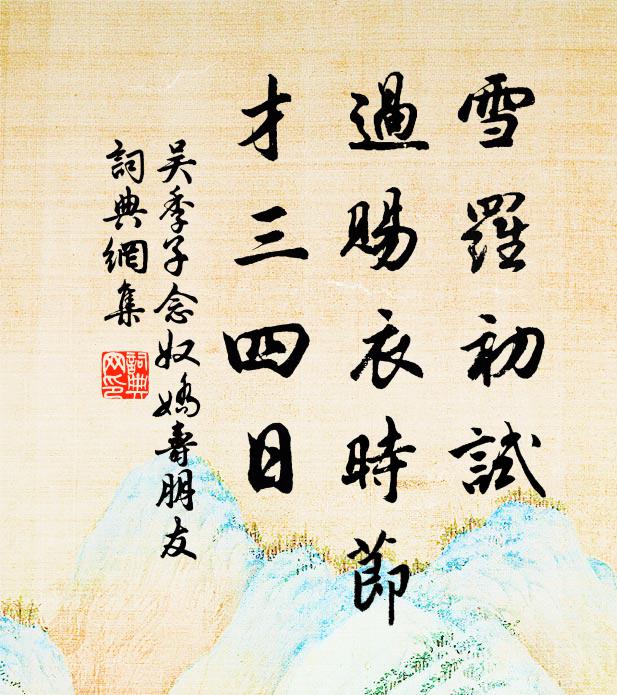 雪羅初試
過賜衣時節
才三四日
吳季子念奴嬌壽朋友
詞典網集
詞典
网印